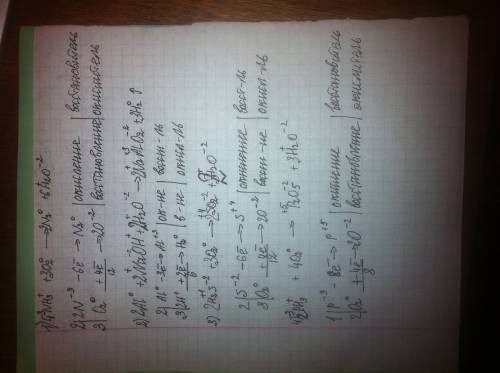 1) 4NH₃ + 3O₂⁰ → 2N₂⁰ + 6H₂O⁻²
2|2N⁻³ - 6ē → N₂⁰ | окисление | восстановитель
3|O₂⁰ + 4ē → 2O⁻² | восстановление | окислитель
12
2) 2Al⁰ + 2NaOH + 2H₂O⁻² → 2NaAlO₂ + 3H₂⁰↑
2|Al⁰ - 3ē → Al⁺³ | ок-ие | восст-ль
3|2H⁺ + 2ē → H₂⁰ | в-ие | окисл-ль
6
3) 2H₂S⁻² + 3O₂⁰ → 2SO₂⁻² + 2H₂O⁻²
2|S⁻² - 6ē → S⁺⁴ | окисление | восст-ль
3|O₂⁰ + 4ē → 2O⁻² | восст-ие | окисл-ль
12
4) 2PH₃ + 4O₂⁰ → P₂O₅ + 3H₂O⁻²
1|P⁻³ - 8ē → P⁺⁵ | окисление | восстановитель
2|O₂⁰ + 4ē → 2O⁻² | восстановление | окислитель
8